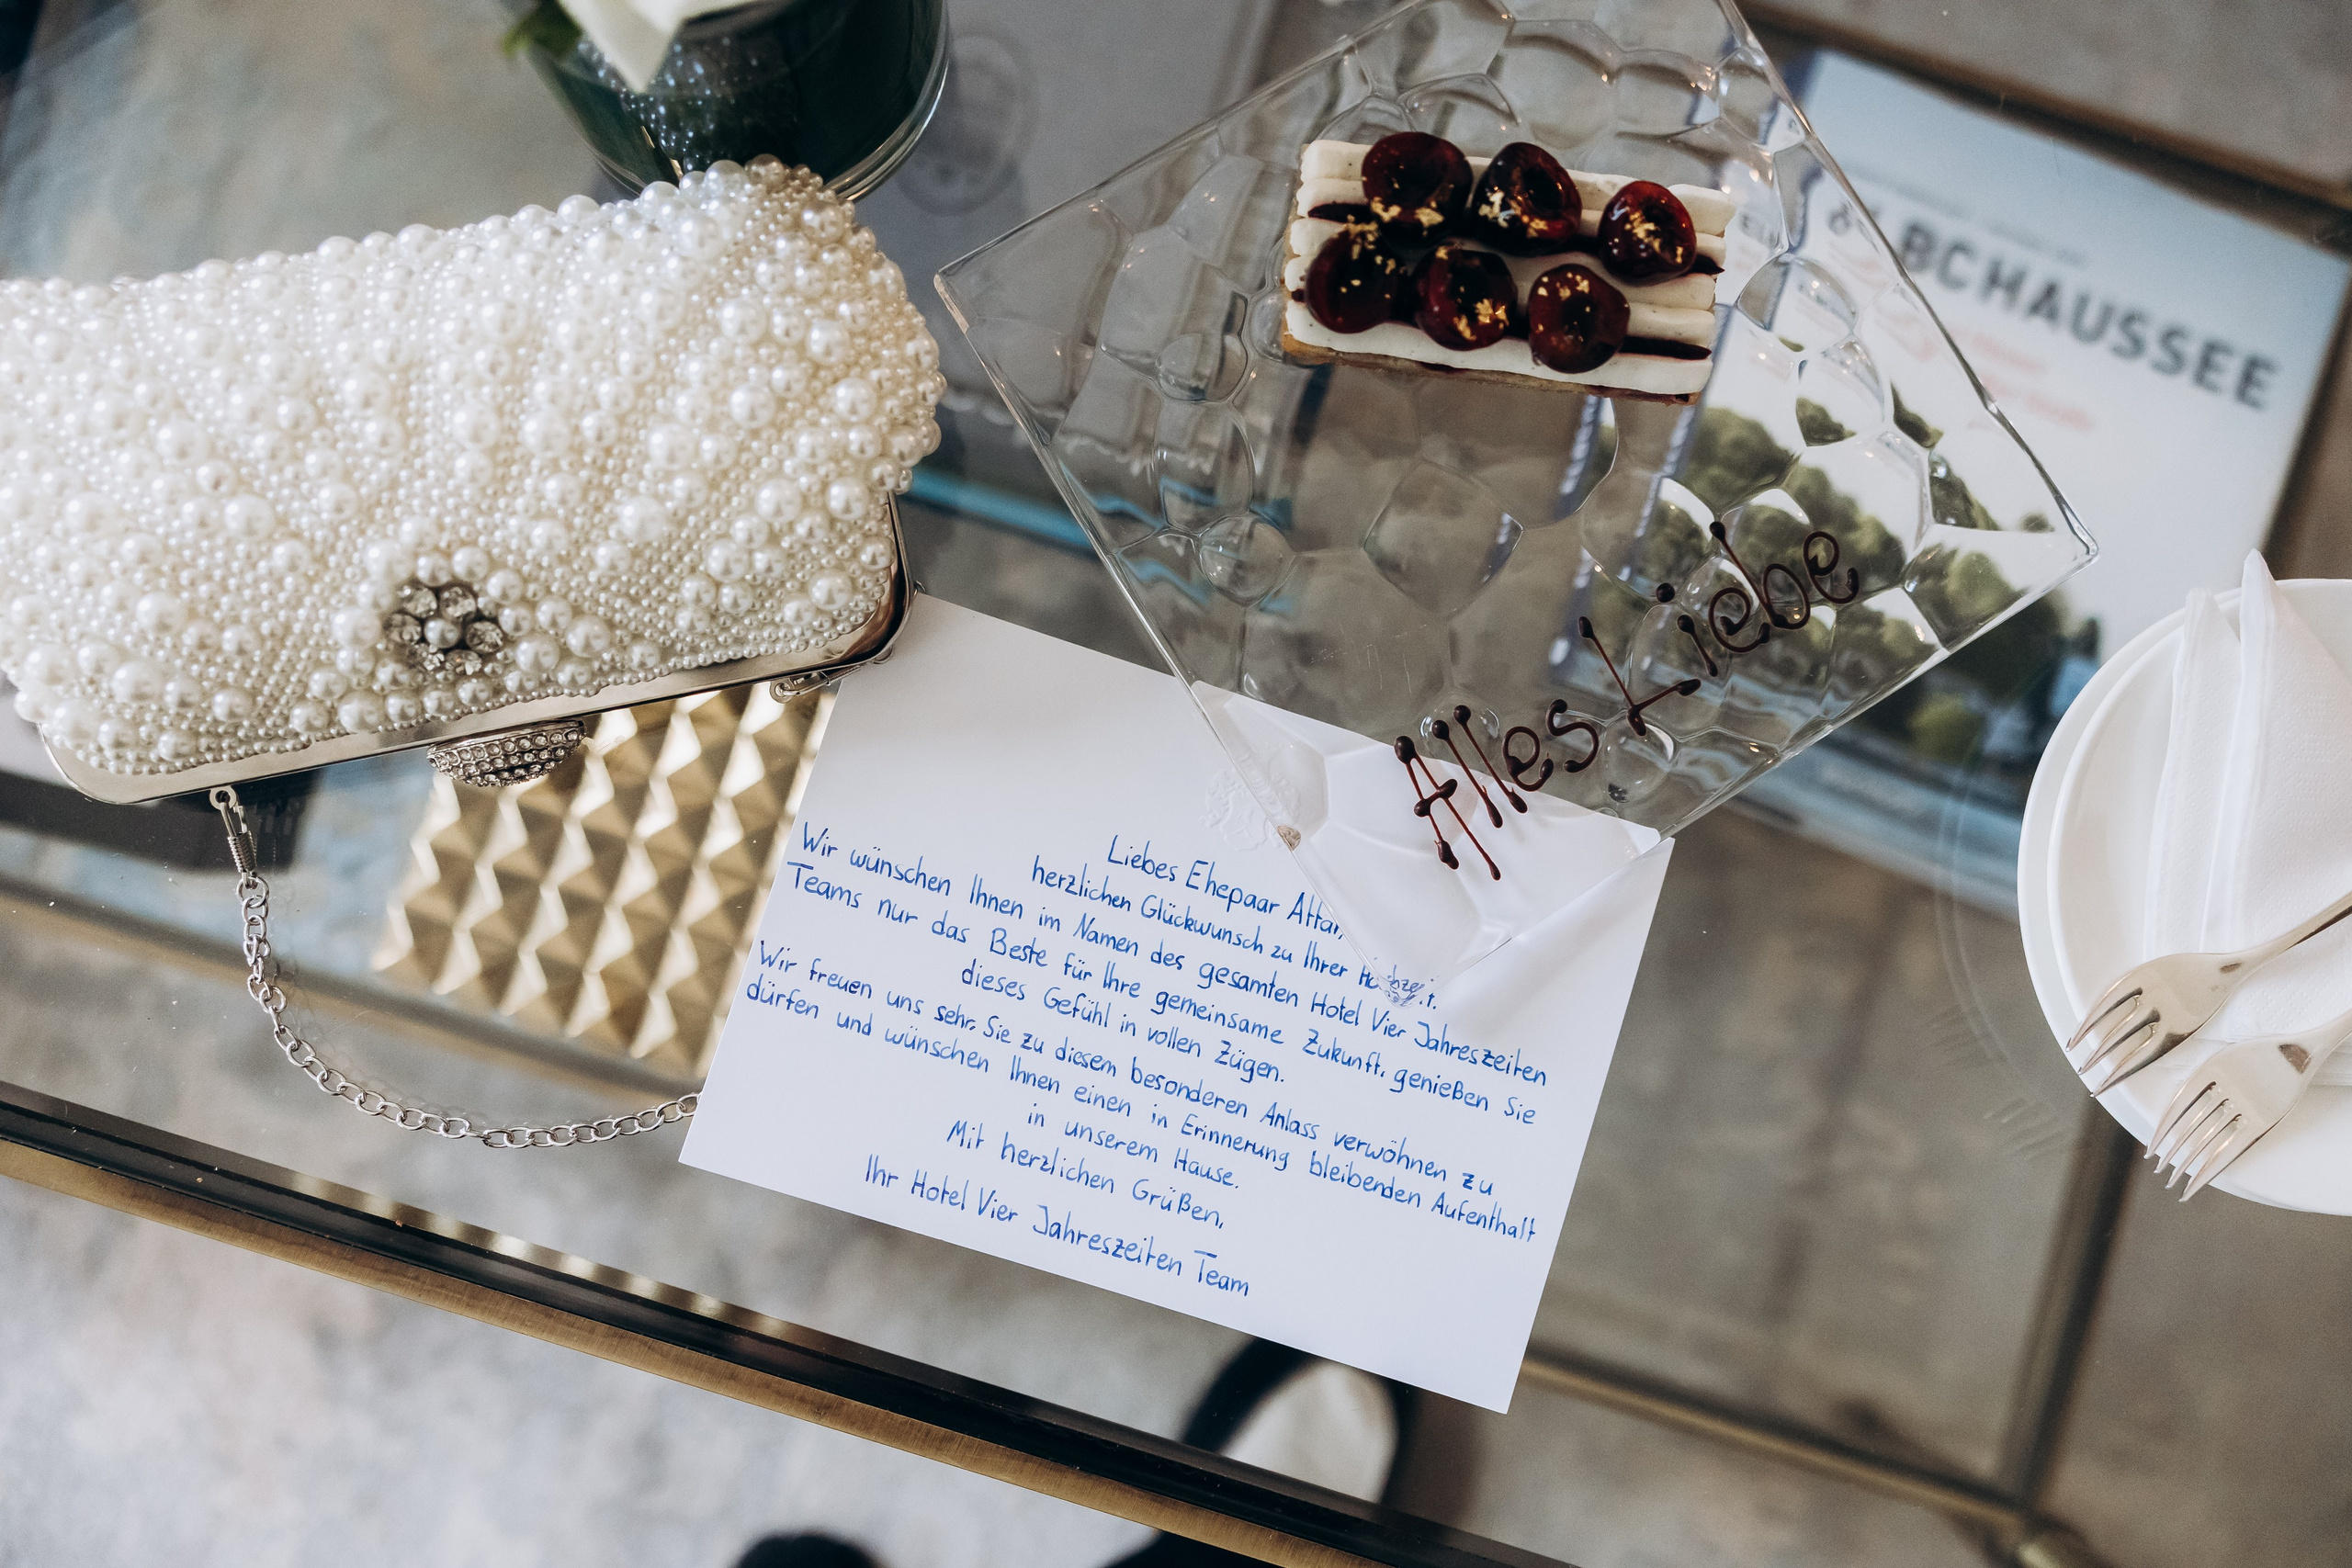 BCHAUSSEE
Alles Liebe
Liebes Ehepaar Attar,
herzlichen Glückwunsch zu Ihrer Hochzeit.
Wir wünschen Ihnen im Namen des gesamten Hotel Vier Jahreszeiten
Teams nur das Beste für Ihre gemeinsame Zukunft, genießen Sie
dieses Gefühl in vollen Zügen.
Wir freuen uns sehr, Sie zu diesem besonderen Anlass verwöhnen zu
dürfen und wünschen Ihnen einen in Erinnerung bleibenden Aufenthalt
in unserem Hause.
Mit herzlichen Grüßen,
Ihr Hotel Vier Jahreszeiten Team